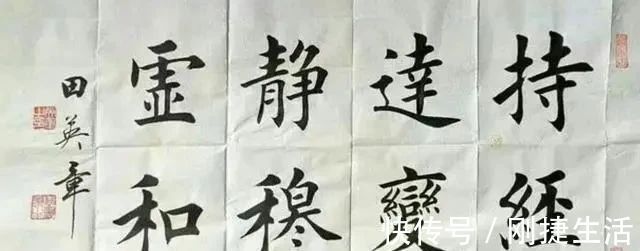 持經
達變
静穆
虚和
田英章
快传号 / 刚捷生活